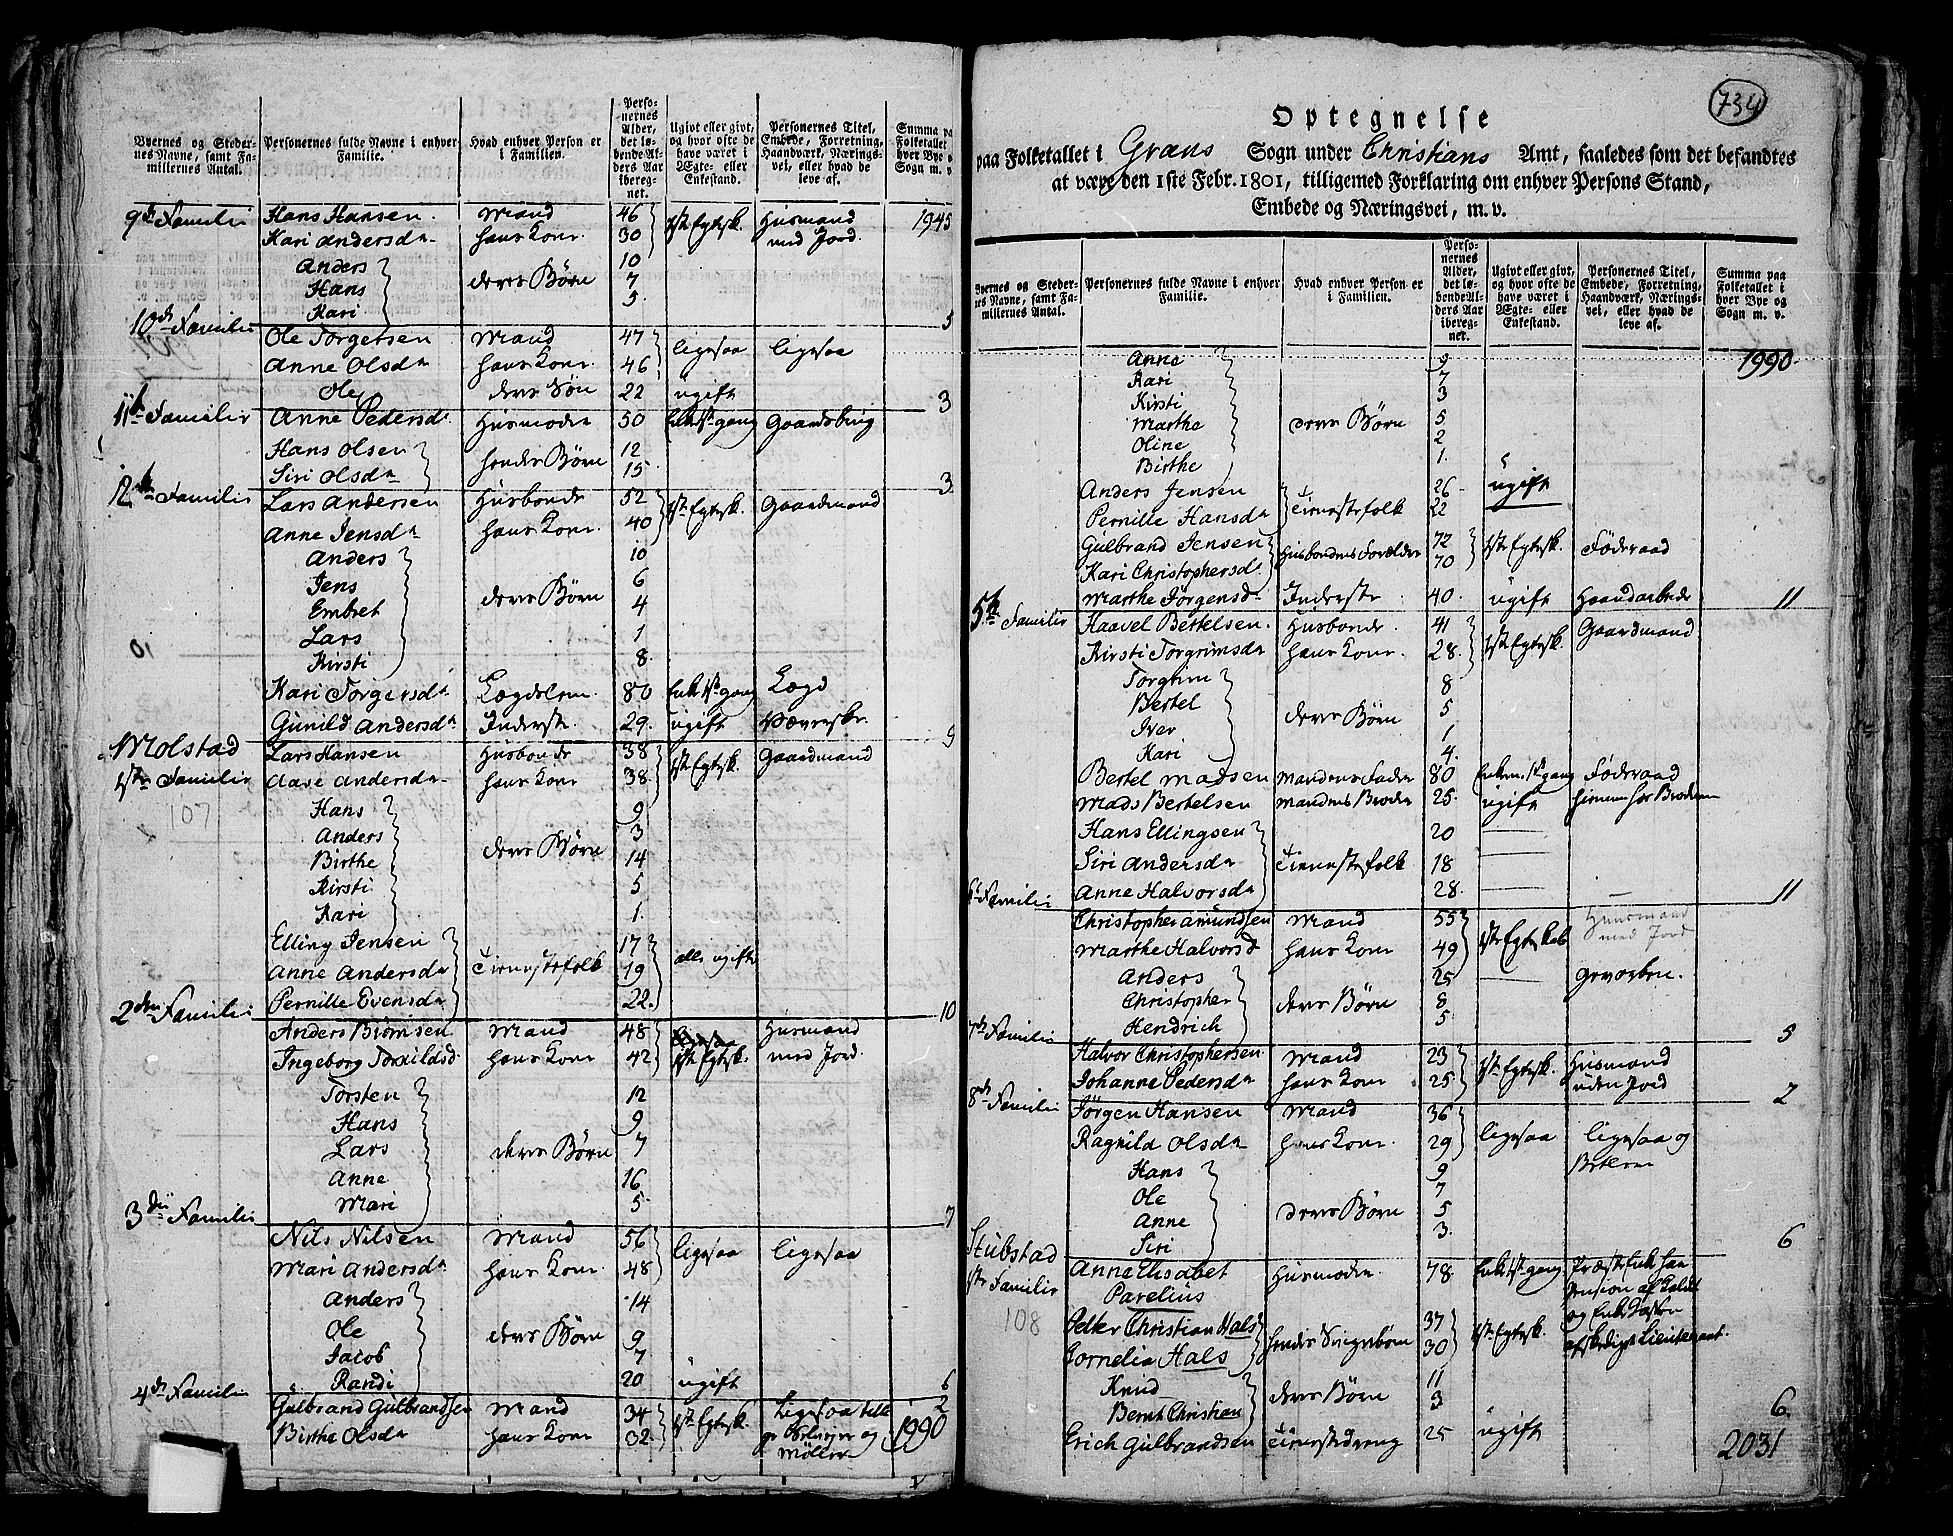 Byernes og Steder-
nes Navne, samt Fa-
milernes Antal.
Personernes fulde Navne i enhver
Familie.
Hvad enhver Person er
i Familien.
Perso-
nernes
Alder,
det lø-
bende Al-
ders Aar
ibereg-
net.
Ugivt eller givt,
og hvor ofte de
have været i
Ægte- eller
Enkestand.
Personernes Titel,
Embede, Forretning,
Haandværk, Nærings-
vei, eller hvad de
leve af.
Summa pa
Folketallet
hver Bye o
Sogn m. v.
9de Familie Hans Hansen Mand 46 1ste Egtesk. Husmand 1945
Kari Andersda hans Kone 30 med Jord
Anders 10
Hans deres Børn 7
Kari 5
10de Familie 5
Ole Torgersen Mand 47
Anne Olsda hans Kone 46 ligesaa ligesaa
Ole deres Søn 22 ugift 3
11te Familie Anne Pedersd. Husmoder 50 Enke 1ste gang
Hans Olsen 12
Siri Olsda hendes Børn 15
12te Familie 3
Lars Andersen Husbonde 52 1ste Egtesk. Gaardmand
Anne Jensda hans Kone 40
Anders 10
Jens 6
Embret deres Børn 4
Lars 1
Kirsti 8
Kari Torgersd. Lægdslem 80 Enke 1ste gang Lægd
Gunild Andersda Inderste 29 ugift Væverske 9
Molstad Lars Hansen Husbonde 38 1ste Egtesk. Gaardmand
1ste Familie Aase Andersda hans Kone 38
107 Hans 9
Anders 3
Birthe deres Børn 14
Kirsti 5
Kari 1
Elling Jensen 17
Anne Andersda Tienestefolk 19 alle ugifte
Pernille Evensda 22
2den Familie 10
Anders Biørnsen Mand 48 Husmand
Ingeborg Torkildsd. hans Kone 42 1ste Egtesk. med Jord
Torsten 12
Hans 9
Lars deres Børn 7
Anne 16
Mari 5
3die Familie 7
Nils Nilsen Mand 56
Mari Andersda hans Kone 48 ligesaa ligesaa
Anders 14
Ole deres Børn 9
Jacob 7
Randi 20 ugift
4de Familie 6
Gulbrand Gulbrandsen Mand 34 1ste Egtesk. Ligesaa 2
Birthe Olsda hans Kone 32 og Møller 1990
734
Optegnelse
paa Folketallet i Grans Sogn under Christians Amt, saaledes som det befandtes
at være den 1ste Febr. 1801, tilligemed Forklaring om enhver Persons Stand,
Embede og Næringsvei, m. v.
Byernes og Steder-
nes Navne, samt Fa-
millernes Antal.
Personernes fulde Navne i enhver
Familie.
Hvad enhver Person er
i Familien.
Perso-
nernes
Alder,
det lø-
bende Al-
ders Aar
ibereg-
net.
Ugivt eller givt,
og hvor ofte de
have været i
Ægte- eller
Enkestand.
Personernes Titel,
Embede, Forretning,
Haandværk, Nærings-
vei, eller hvad de
leve af.
Summa paa
Folketallet i
hver Bye og
Sogn m. v.
Anne 9 1990
Kari 7
Kirsti 3
Marthe deres Børn 5
Oline 2
Birthe 1
Anders Jensen 26 ugift
Pernille Hansda Tienestefolk 22
Gulbrand Jensen 72 1ste Egtesk. Føderaad
Kari Christophersda Husbondens Forælder 70
Marthe Jørgensd. Inderste 40 ugift Haandarbeide 11
5te Familie Haavel Bertelsen Husbonde 41 1ste Egtesk. Gaardmand
Kirsti Torgrimsda hans Kone 28
Torgrim 8
Bertel 5
Iver deres Børn 1
Kari 4
Bertel Madsen Mandens Fader 80 Enkem. 1ste gang Føderaad
Mads Bertelsen Mandens Broder 25 ugift
Hans Ellingsen 20
Siri Andersda Tienestefolk 18
Anne Halvorsda 28
6te Familie 11
Christopher Amundsen Mand 55 1ste Egteskab Huusmand
Marthe Halvorsd hans Kone 49 med Jord
Anders 25 gevorben
Christopher deres Børn 8
Hendrich 5
7de Familie 5
Halvor Christophersen Mand 23 1ste Egtesk. Husmand
Johanne Pedersda hans Kone 25 uden Jord
8de Familie 2
Jørgen Hansen Mand 36
Ragnild Olsda hans Kone 29 ligesaa ligesaa og
Hans 9 Betlere
Ole 7
Anne deres Børn 5
Siri 3
Stubstad 6
1ste Familie Anne Elisabet Husmoder 78 Enke 1ste gang Præste Enke har
Parelius Pension af
108 Petter Christian Hals 37 1ste Egtesk. og Enke Cassen
Cornelia Hals hendes Svigerbørn 30 afskediget Lieutenant
Knud 11
Bernt Christian deres Børn 3
Erich Gulbrandsen Tienestedreng 25 ugift 6
2031